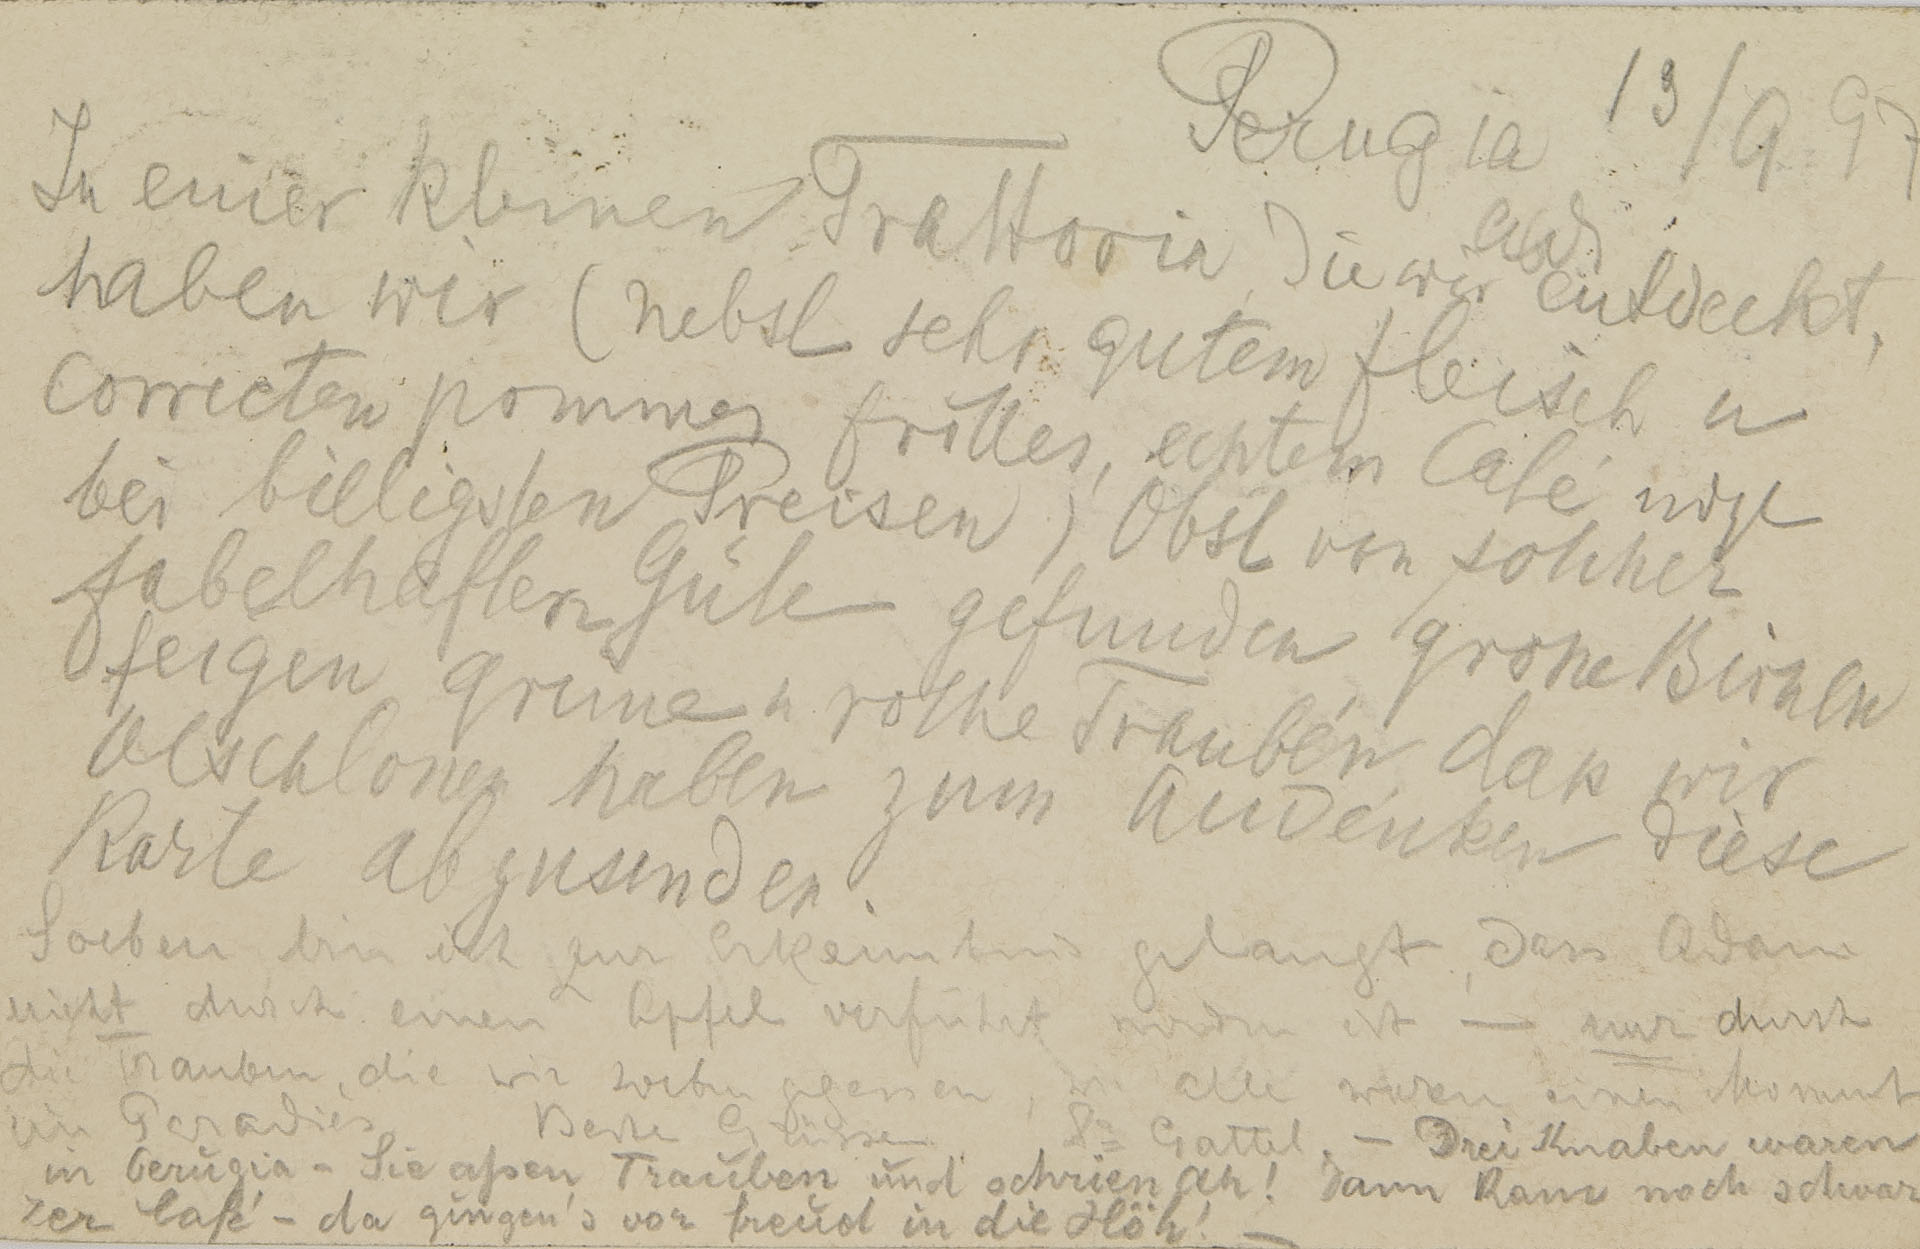 Perugia 13/9 97
In einer kleinen Trattoria, die wir entdeckt,
haben wir (nebst sehr gutem Fleisch u
correcten pommes frittes, echtem Café
bei billigsten Preisen) Obst von solcher
fabelhaften Güte gefunden große Birnen
Feigen grüne u rothe Trauben daß wir
beschlossen haben zum Andenken diese
Karte abzusenden.
Soeben bin ich zur Erkenntnis gelangt, dass Adam
nicht durch einen Apfel verführt worden ist — nur durch
die Trauben, die wir soeben gegessen, wir alle waren einen Moment
im Paradies. Beste Grüsse Dr Gattel. — Drei Knaben waren
in Perugia - Sie aßen Trauben und schrien Ah! Dann kam noch schwar
zer Café - da gingen's vor Freud in die Höh! —